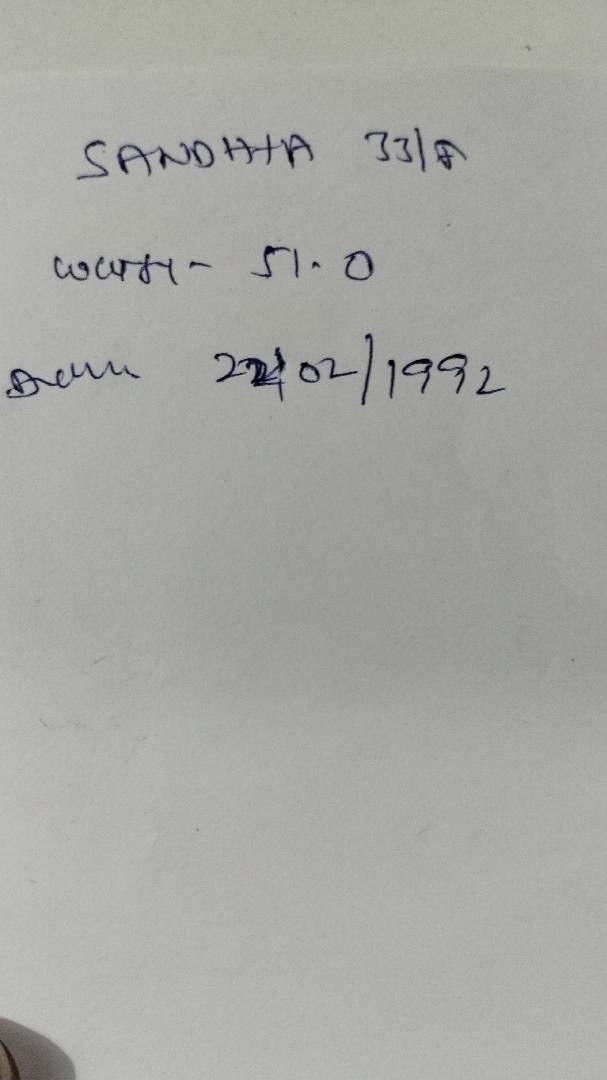 SANDHYA 33/F
51.0
22/02/1992